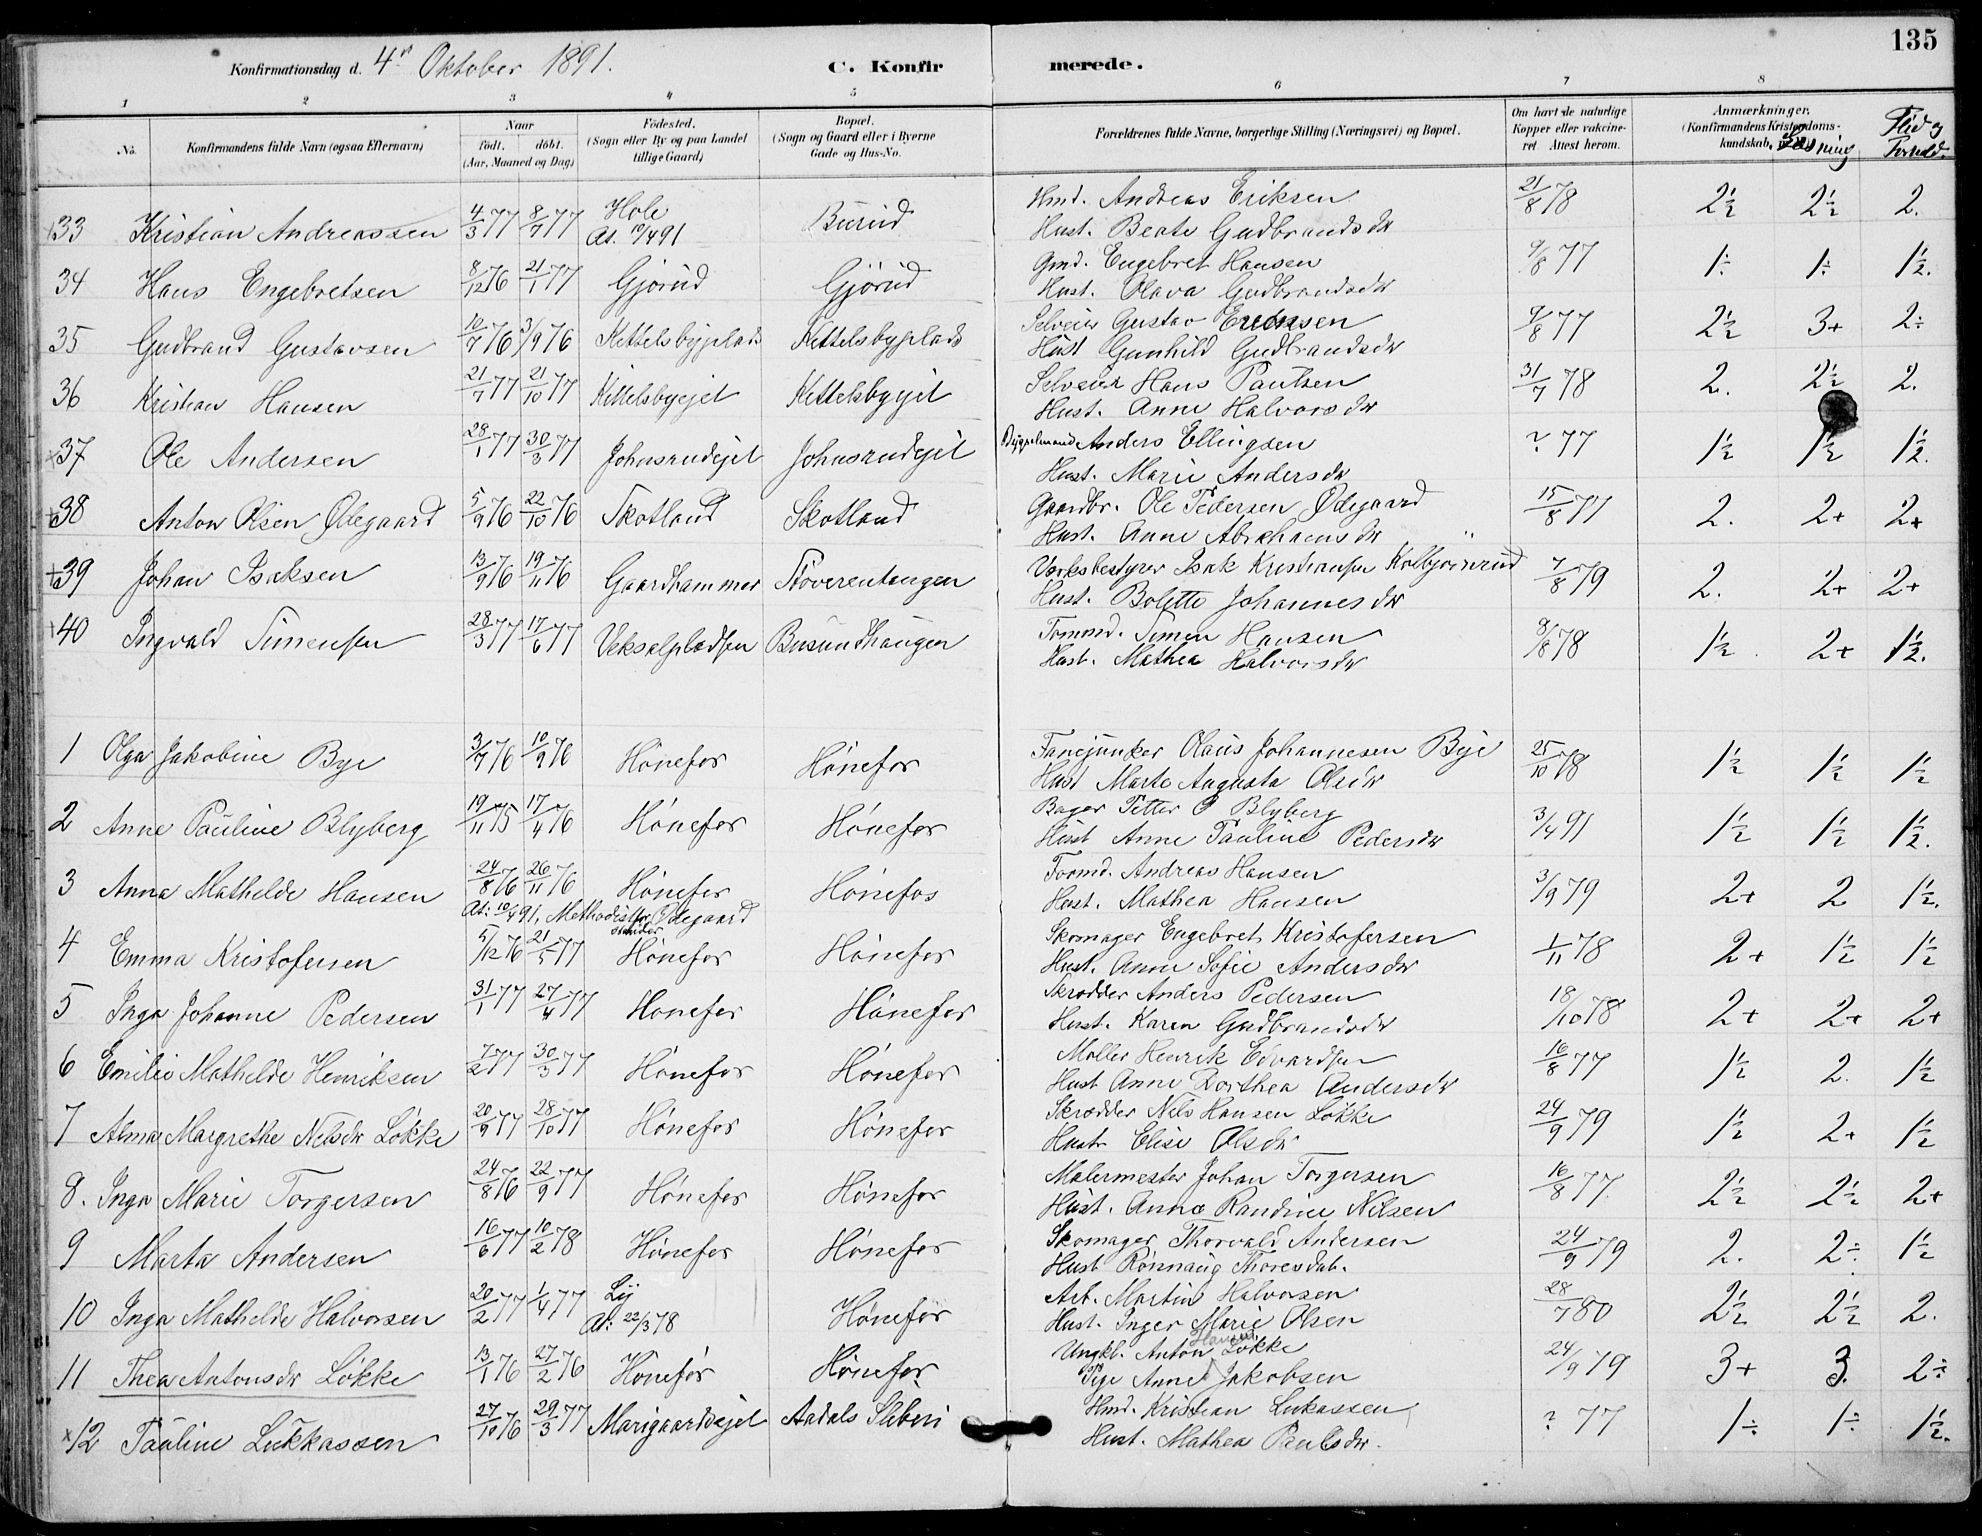 135
Konfirmationsdag d. 4de Oktober 1891. C. Konfirmerede.
1 2 3 4 5 6 7 8
No. Konfirmandens fulde Navn (ogsaa Efternavn) Naar født. døbt. (Aar, Maaned og Dag) Fødested. (Sogn eller By og paa Landet tillige Gaard) Bopæl. (Sogn og Gaard eller i Byerne Gade og Hus-No. Forældrenes fulde Navne, borgerlige Stilling (Næringsvei) og Bopæl. Om havt de naturlige Kopper eller vakcineret Attest herom. Anmærkninger. (Konfirmandens Kristendomskundskab, Læsning Flid og Forhold.
33 Kristian Andreassen 4/3 77 8/7 77 Hole At. 10/4 91 Burud Hmd. Andreas Eriksen Hust. Beate Gudbrandsdr 21/8 78 2½ 2½ 2.
34 Hans Engebretsen 8/12 76 21/1 77 Gjørud Gjørud Gmd. Engebret Hansen Hust. Olava Gudbrandsdr 9/8 77 1÷ 1÷ 1½.
35 Gudbrand Gustavsen 10/7 76 3/9 76 Kittelsbyplads Kettelsbyplads Selveier Gustav Hust Gunhild Gudbrandsdr 9/8 77 2½ 3+ 2÷
36 Kristian Hansen 21/7 77 21/10 77 Kittelsbyejet Kettelsbyejet Selveier Hans Paulsen Hust. Anne Halvorsdr 31/7 78 2. 2½ 2.
37 Ole Andersen 28/1 77 30/3 77 Johnsrudejet Johnsrudejet Anders Ellingsen Hust. Marie Andersdr ? 77 1½ 1½ 1½.
38 Anton Olsen Ødegaard 5/9 76 22/10 76 Skotland Skotland Gaardbr. Ole Pedersen Ødegaard Hust. Anne Abrahamsdr 15/8 77 2. 2+ 2+
39 Johan Isaksen 13/9 76 19/11 76 Gaardhammer Støverentangen Værksbestyrer Isak Kristiansen Kolbjørnrud Hust. Bolette Johannesdr 7/8 79 2. 2+ 2+
40 Ingvald Simensen 28/3 77 17/6 77 Veksalpladsen Busundhaugen Tømmd. Simen Hansen Hust. Mathea Halvorsdr 9/8 78 1½ 2+ 1½.
1 Olga Jakobine Bye 3/7 76 10/9 76 Hønefos Hønefos Fanejunker Olaus Johannesen Bye Hust Marte Augusta Olsdr 25/10 78 1½ 1½ 1½
2 Anne Pauline Blyberg 19/11 75 17/4 76 Hønefos Hønefos Bager Petter P Blyberg Hust Anne Pauline Pedersdr 3/4 91 1½ 1½ 1½.
3 Anna Mathilde Hansen 24/8 76 26/11 76 Hønefos Hønefos Tommd. Andreas Hansen Hust. Mathea Hansen 3/9 79 2+ 2 1½.
At: 10/4 91. Methodistforstander Ødegaard
4 Emma Kristofersen 5/12 76 21/5 77 Hønefos Hønefos Skomager Engebret Kristofersen Hust. Anne Sofie Andersdr 1/11 78 2+ 1½ 1½
5 Inga Johanne Pedersen 31/1 77 27/4 77 Hønefos Hønefos Skrædder Anders Pedersen Hust. Karen Gudbrandsdr 18/10 78 2+ 2+ 2+
6 Emilie Mathilde Henriksen 7/2 77 30/3 77 Hønefos Hønefos Møller Henrik Edvardsen Hust Anne Dorthea Andersdr 16/8 77 1½ 2. 1½
7 Alma Margrethe Nelsdr Løkke 20/9 77 28/10 77 Hønefos Hønefos Skrædder Nels Hansen Løkke Hust. Elise Olsdr 24/9 79 1½ 2+ 1½
8. Inga Marie Torgersen 24/8 76 22/9 77 Hønefos Hønefos Malermester Johan Torgersen Hust. Anna Randine Nilsen 16/8 77. 2½ 2½ 2+
9 Marta Andersen 16/6 77 10/2 78 Hønefos Hønefos Skomager Thorvald Andersen Hust Rønnaug Thoresdat. 24/9 79 2. 2÷ 1½
10 Inga Mathilde Halvorsen 20/2 77 1/4 77 At: 22/3 78 Hønefos Arb. Martin Halvorsen Hust. Inger Marie Olsen 28/7 80 2½ 2½ 2.
11 Thea Antonsdr Løkke 13/1 76 27/2 76 Hønefos Hønefos Ungkl. Anton Hansen Løkke Pige Anne Jakobsen 24/9 79 3+ 3. 2÷
12 Pauline Lukkassen 27/10 76 29/3 77 Marigaardsejet Aadals Sliberi Hmd. Kristian Lukassen Hust. Mathea Paulsdr. ? 77 1÷ 1÷ 1½.